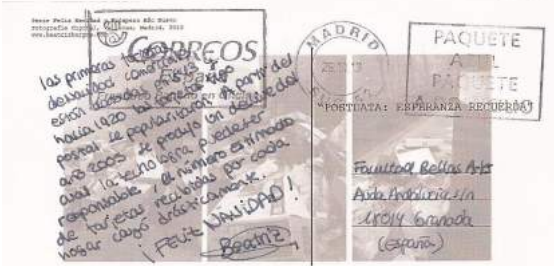 Serie Feliz Navidad y Próspero Año Nuevo
Fotografía Digital, Madrid, 2013
www.beatriz
CORREOS
España
MADRID
PAQUETE
AZUL
PAQUETE
"POSTDATA: ESPERANZA RECUERDA"
las primeras tarjetas
de navidad comerciales
están
hacia 1920 la tarjeta
postal se popularizaron. A partir del
año 2005 se produjo un declive del
cual la tecnología puede ser
responsable, el número estimado
de tarjetas recibidas por cada
hogar cayó drásticamente.
¡FELIZ NAVIDAD!
Beatriz
Facultad Bellas Arts
Avda Andalucía s/n
18014 Granada
(España)